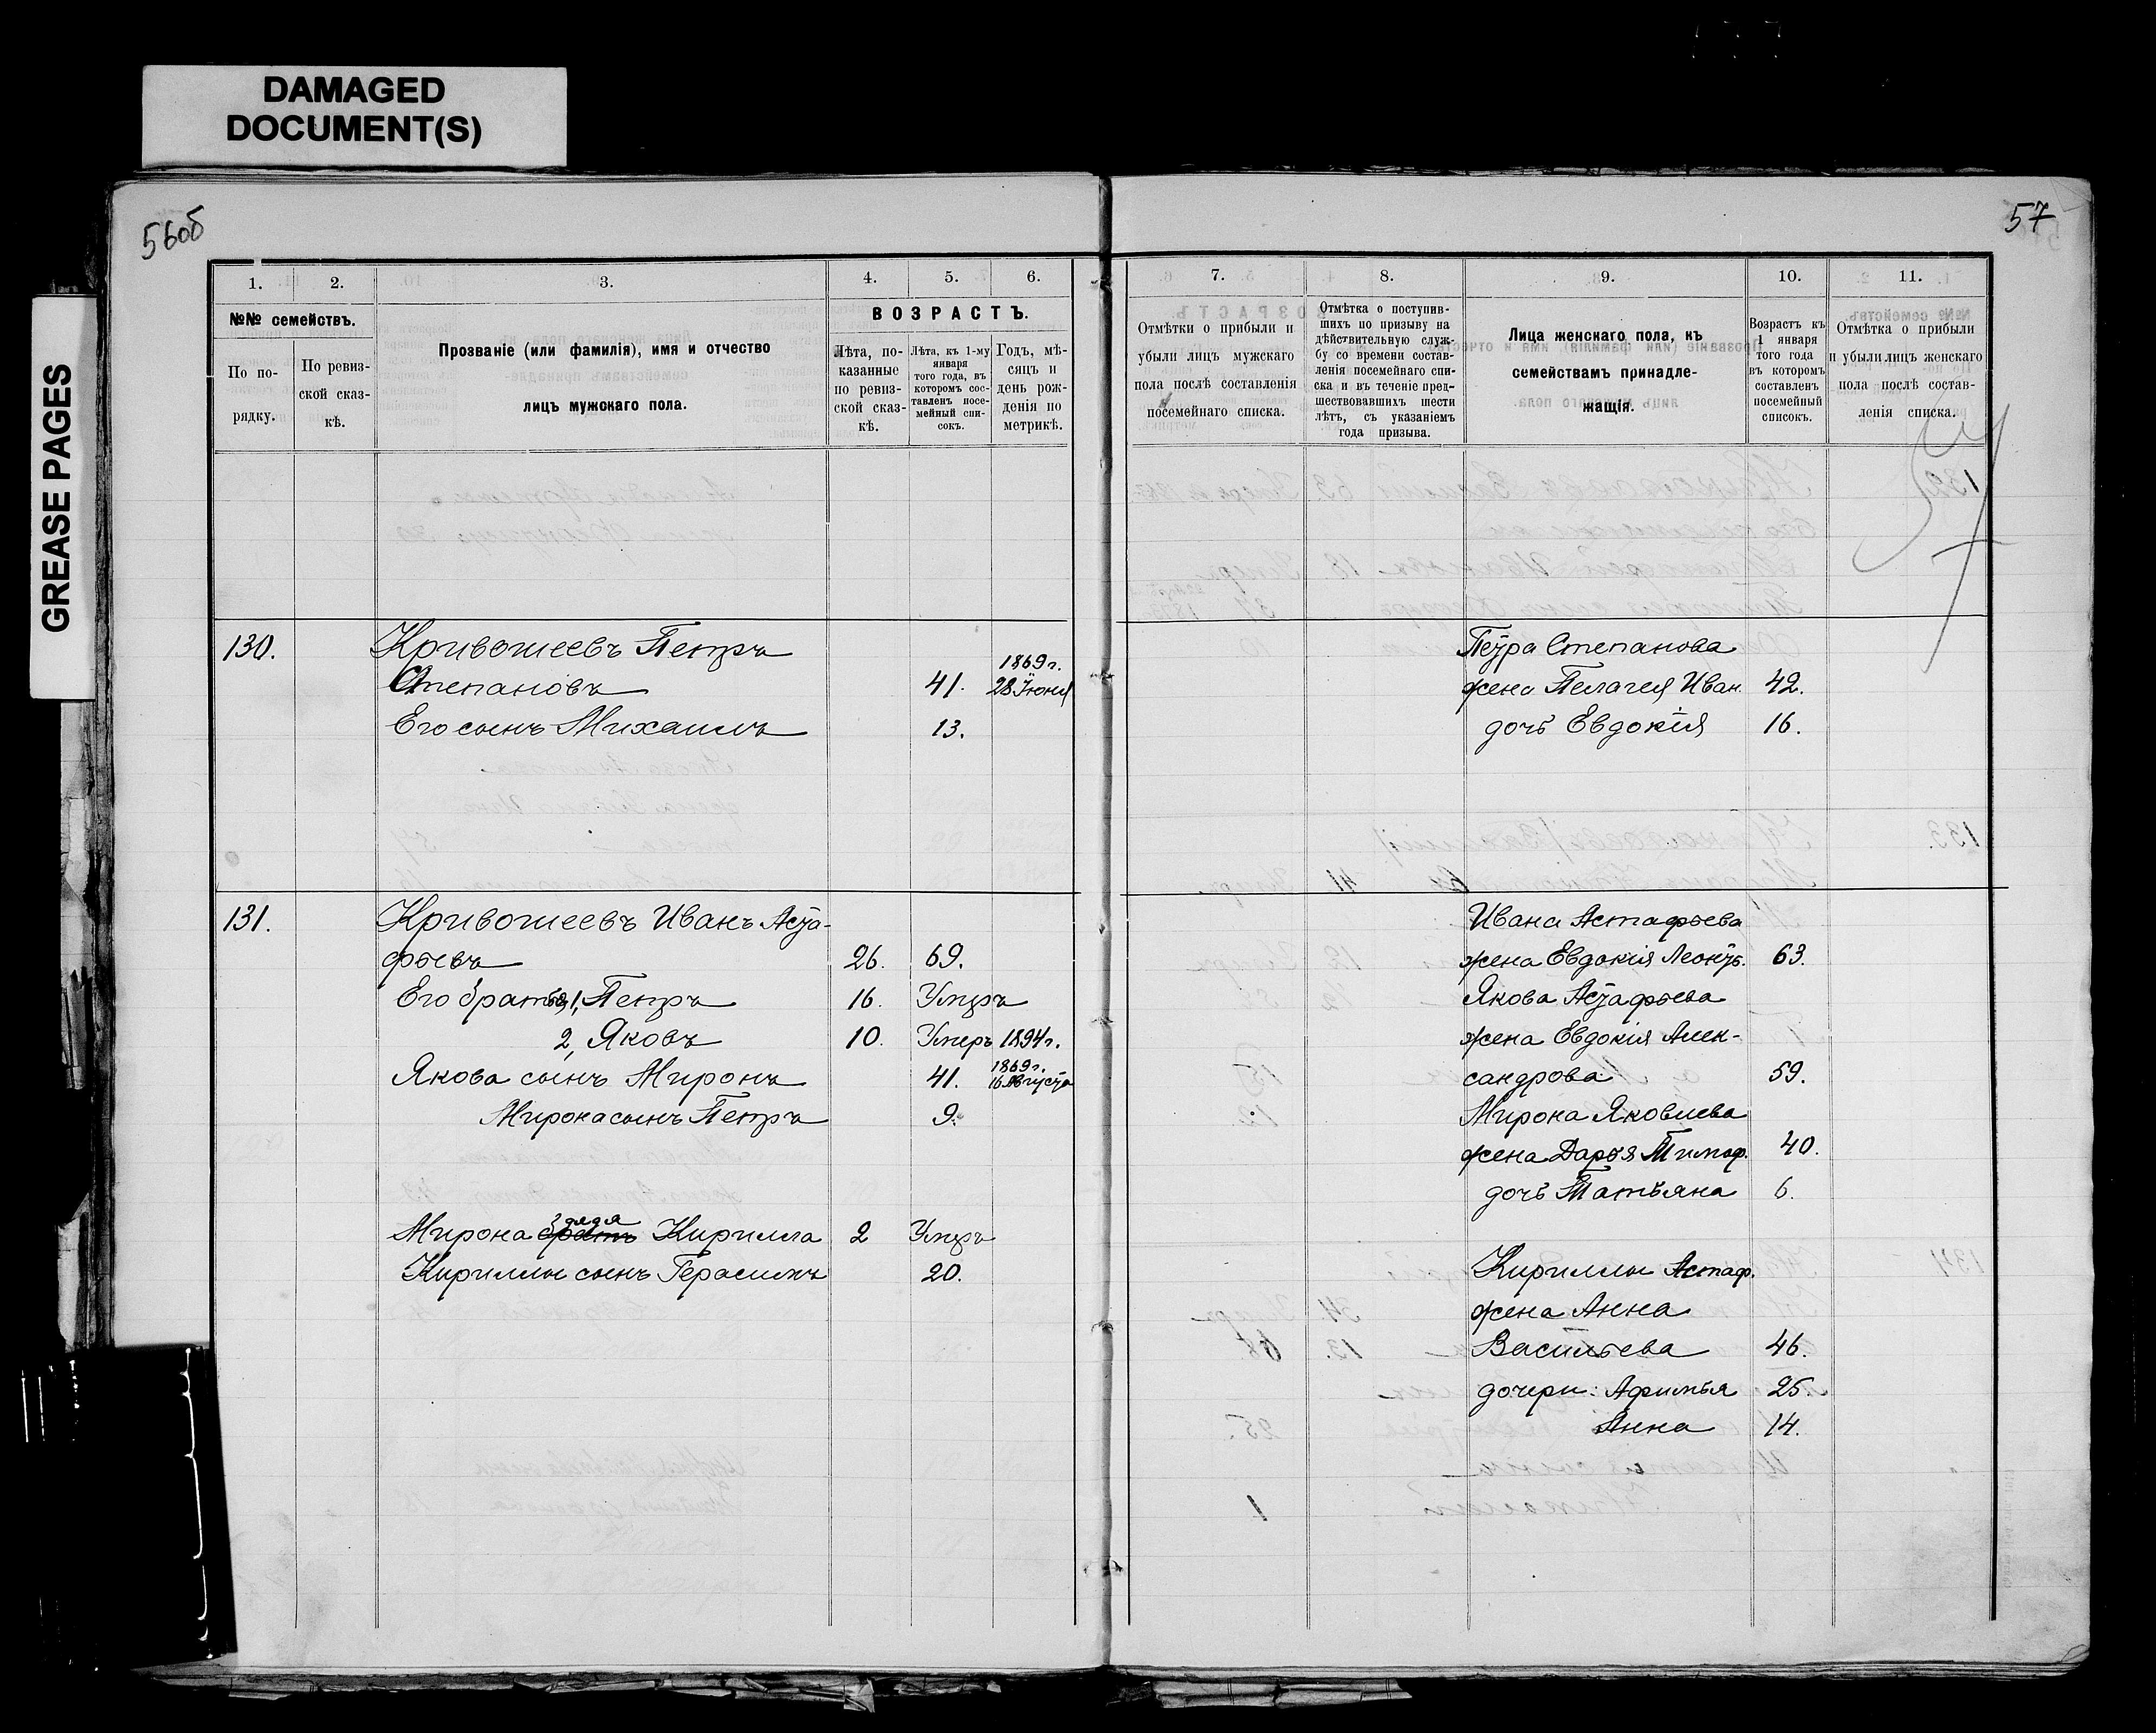 DAMAGED
DOCUMENT(S)
GREASE PAGES
56об
57
1.
2.
3.
4.
5.
6.
№№ семействъ.
По по-
рядку.
По ревиз-
ской сказ-
кѣ.
Прозваніе (или фамилія), имя и отчество
лицъ мужскаго пола.
ВОЗРАСТЪ.
Лѣта, по-
казанные
по ревиз-
ской сказ-
кѣ.
Лѣта, къ 1-му
января
того года, въ
которомъ сос-
тавленъ посе-
мейный спи-
сокъ.
Годъ, мѣ-
сяцъ и
день рож-
денія по
метрикѣ.
130.
Кривошеевъ Петръ
Степановъ 41. 1869 г. 28 Іюня
Его сынъ Михаилъ 13.
131.
Кривошеевъ Иванъ Аста-
фьевъ 26. 69.
Его братья 1, Петръ 16. Умеръ
2, Яковъ 10. Умеръ 1894 г.
Якова сынъ Миронъ 41. 1869 г. 16 Августа
Мирона сынъ Петръ 9.
дядя
Мирона братъ Кирилла 2 Умеръ
Кириллы сынъ Герасимъ 20.
7.
8.
9.
10.
11.
Отмѣтки о прибыли и
убыли лицъ мужскаго
пола послѣ составленія
посемейнаго списка.
Отмѣтка о поступив-
шихъ по призыву на
дѣйствительную служ-
бу со времени состав-
ленія посемейнаго спи-
ска и въ теченіе пред-
шествовавшихъ шести
лѣтъ, съ указаніемъ
года призыва.
Лица женскаго пола, къ
семействамъ принадле-
жащія.
Возрастъ къ
1 января
того года
въ которомъ
составленъ
посемейный
списокъ.
Отмѣтка о прибыли
и убыли лицъ женскаго
пола послѣ состав-
ленія списка.
57
Петра Степанова
жена Пелагея Иван. 42.
дочь Евдокія 16.
Ивана Астафьева
жена Евдокія Леонть. 63.
Якова Астафьева
жена Евдокія Алек-
сандрова 59.
Мирона Яковлева
жена Дарья Тимоф. 40.
дочь Татьяна 6.
Кириллы Астаф.
жена Анна
Васильева 46.
дочери: Афимья 25.
Анна 14.